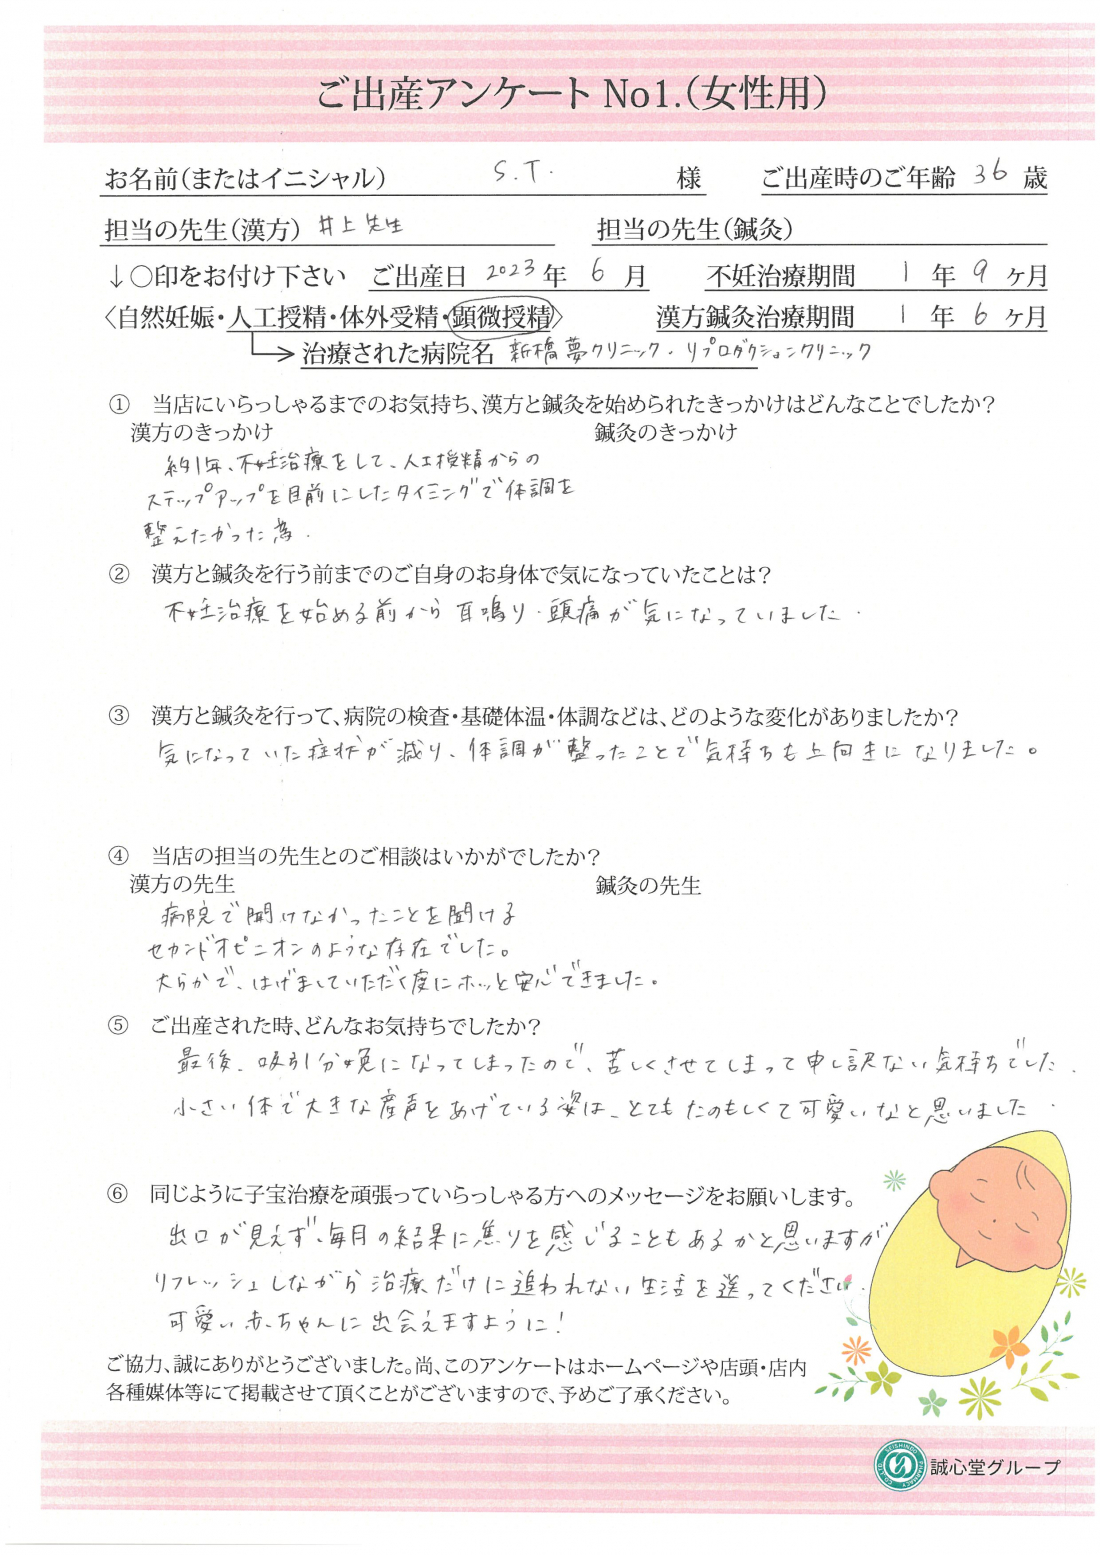 ご出産アンケート No1.(女性用)
お名前(またはイニシャル) S.T. 様 ご出産時のご年齢 36 歳
担当の先生(漢方) 井上先生 担当の先生(鍼灸)
↓〇印をお付け下さい ご出産日 2023年 6月 不妊治療期間 1年 9ヶ月
〈自然妊娠・人工授精・体外受精・顕微授精〉 漢方鍼灸治療期間 1年 6ヶ月
治療された病院名 新橋夢クリニック・リプロダクションクリニック
① 当店にいらっしゃるまでのお気持ち、漢方と鍼灸を始められたきっかけはどんなことでしたか?
漢方のきっかけ 鍼灸のきっかけ
約1年、不妊治療をして、人工授精からの
ステップアップを目前にしたタイミングで体調を
整えたかった為.
② 漢方と鍼灸を行う前までのご自身のお身体で気になっていたことは?
不妊治療を始める前から耳鳴り・頭痛が気になっていました.
③ 漢方と鍼灸を行って、病院の検査・基礎体温・体調などは、どのような変化がありましたか?
気になっていた症状が減り、体調が整ったことで気持ちも上向きになりました。
④ 当店の担当の先生とのご相談はいかがでしたか?
漢方の先生 鍼灸の先生
病院で聞けなかったことを聞ける
セカンドオピニオンのような存在でした。
大らかで、はげましていただく度にホッと安心できました。
⑤ ご出産された時、どんなお気持ちでしたか?
最後、吸引分娩になってしまったので、苦しくさせてしまって申し訳ない気持ちでした.
小さい体で大きな産声をあげている姿は、とてもたのもしくて可愛いなと思いました.
⑥ 同じように子宝治療を頑張っていらっしゃる方へのメッセージをお願いします。
出口が見えず、毎月の結果に焦りを感じることもあるかと思いますが
リフレッシュしながら治療だけに追われない生活を送ってください.
可愛い赤ちゃんに出会えますように!
ご協力、誠にありがとうございました。尚、このアンケートはホームページや店頭・店内
各種媒体等にて掲載させて頂くことがございますので、予めご了承ください。
誠心堂グループ